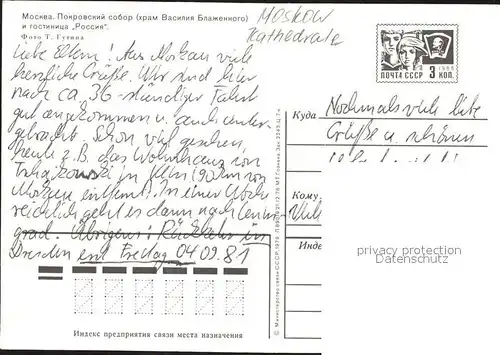 Москва. Покровский собор (храм Василия Блаженного)
и гостиница „Россия".
Фото Т. Гутина
Moskow
Kathedrale
ПОЧТА СССР 3 КОП.
1966
Liebe Eltern! Aus Moskau viele
herzliche Grüße. Wir sind hier
nach ca. 36-stündiger Fahrt
gut angekommen u. auch unter
gebracht. Schon viel gesehen,
heute z.B. das Wohnhaus von
Tschaikowski in Klin (90 km von
Moskau entfernt. In einer Woche
geht es dann nach Lenin
grad. Übrigens: Rückkehr in
Dresden erst Freitag 04.09.81
Куда
Nochmals viele liebe
Grüße u. schönen
Кому
Инде
privacy protection
Datenschutz
Индекс предприятия связи места назначения
© Министерство связи СССР. 1976